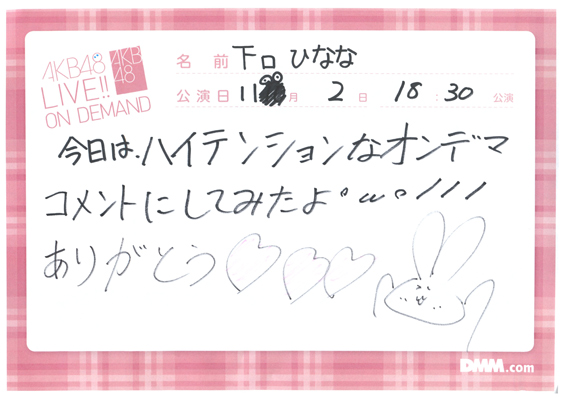 AKB48
LIVE!!
ON DEMAND
AKB
48
名前 下口ひなな
公演日 11月 2日 18:30 公演
今日は、ハイテンションなオンデマ
コメントにしてみたよ°ω°///
ありがとう♡♡♡
DMM.com